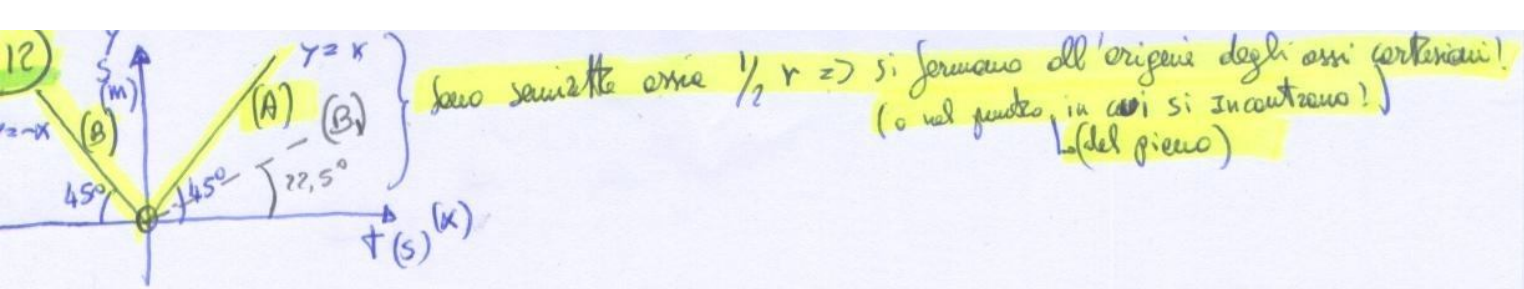 12)
y
S
(m)
y = x
(A)
(B)
y=-x
(B)
45°
45°
22,5°
t (s) (x)
Sono semirette ossia 1/2 r => si fermano all'origine degli assi cartesiani!
(o nel punto, in cui si Incontrano!)
(del piano)